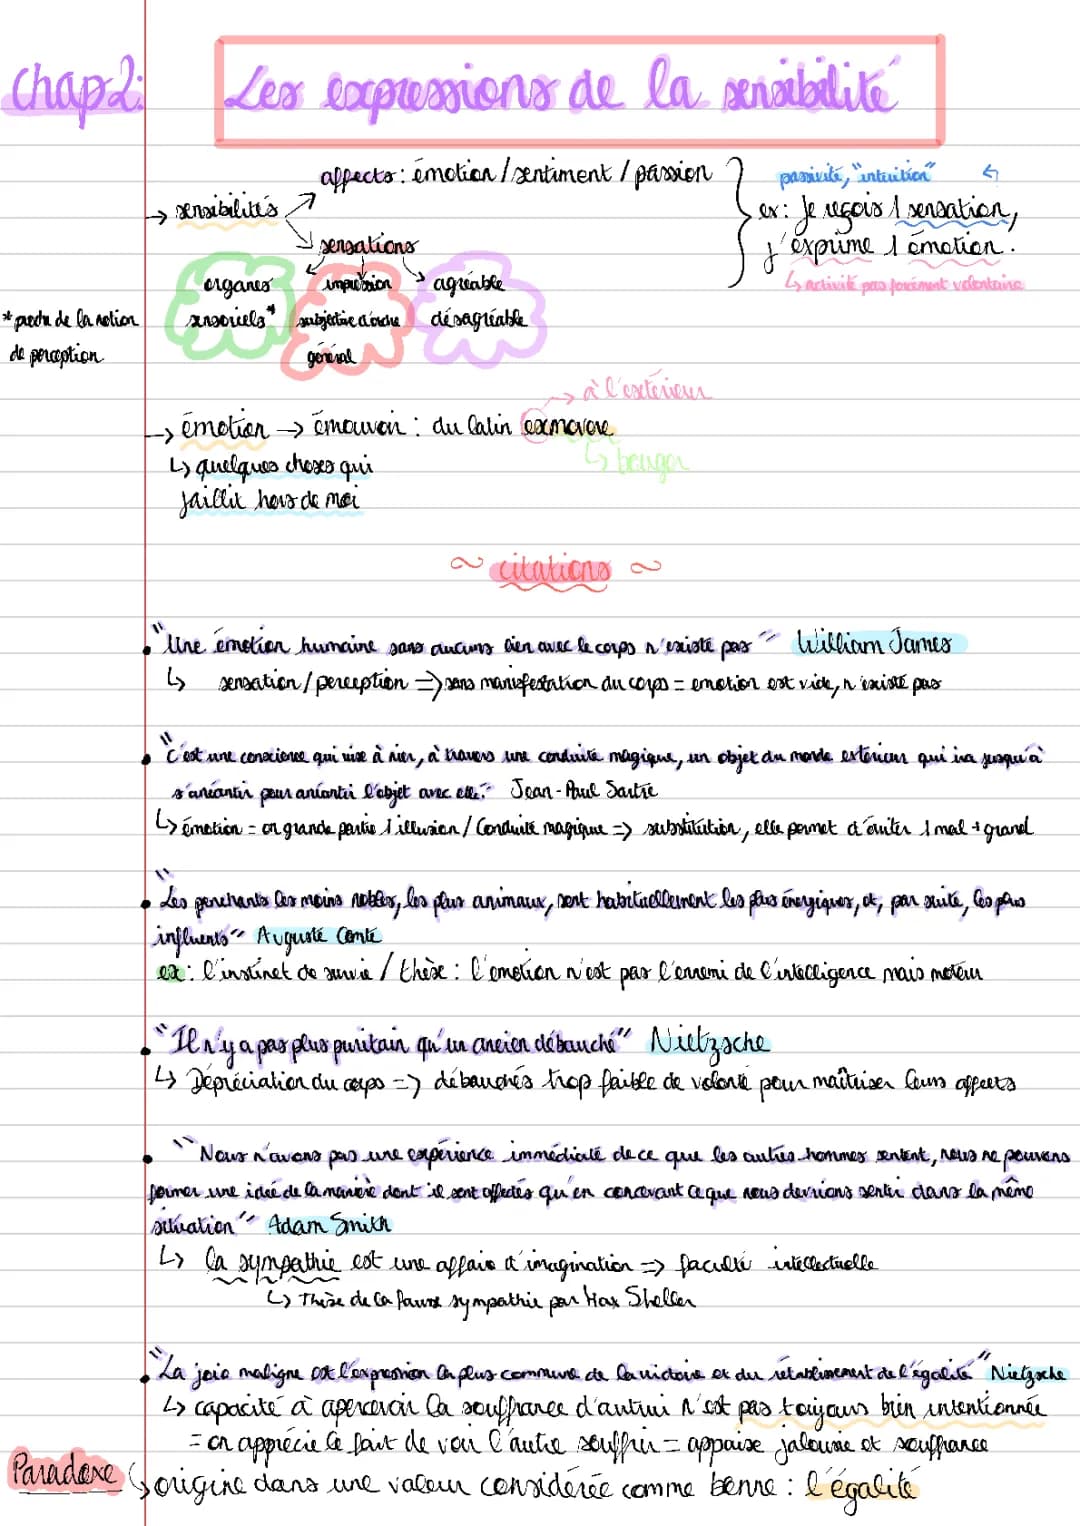 Chap 2: Les expressions de la sensibilité
affects : émotion / sentiment / passion
passivité, "intuition"
→ sensibilités
ex : je reçois 1 sensation,
j'exprime 1 émotion.
↳ activité pas forément volontaire
sensations
organes sensoriels*
impression subjective d'ordre général
agréable désagréable
* proche de la notion
de perception
→ à l'extérieur
→ émotion → émouvoir : du latin exmovere
↳ bouger
↳ quelques choses qui
jaillit hors de moi
~ citations ~
• "Une émotion humaine sans aucuns lien avec le corps n'existe pas" William James
↳ sensation / perception => sans manifestation du corps = emotion est vide, n'existe pas
• "C'est une conscience qui vise à nier, à travers une conduite magique, un objet du monde extérieur qui ira jusqu'à
s'anéantir pour anéantir l'objet avec elle." Jean-Paul Sartre
↳ émotion = en grande partie 1 illusion / Conduite magique => substitution, elle permet d'éviter 1 mal + grand
• "Les penchants les moins nobles, les plus animaux, sont habituellement les plus énergiques, et, par suite, les plus
influents" Auguste Comte
ex : l'instinct de survie / thèse : l'emotion n'est pas l'ennemi de l'intelligence mais moteur
• "Il n'y a pas plus puritain qu'un ancien débauché" Nietzsche
↳ Dépréciation du corps => débauchés trop faible de volonté pour maîtriser leurs affects
• "Nous n'avons pas une expérience immédiate de ce que les autres hommes sentent, nous ne pouvons
former une idée de la manière dont il sont affectés qu'en concevant ce que nous devrions sentir dans la même
situation" Adam Smith
↳ la sympathie est une affaire d'imagination => faculté intellectuelle
↳ Thèse de la fausse sympathie par Max Sheller
• "La joie maligne est l'expression la plus commune de la victoire et du rétablissement de l'égalité" Nietzsche
↳ capacité à apercevoir la souffrance d'autrui n'est pas toujours bien intentionnée
= on apprécie le fait de voir l'autre souffrir = appaise jalousie et souffrance
Paradoxe ↳ origine dans une valeur considérée comme bonne : l'égalité